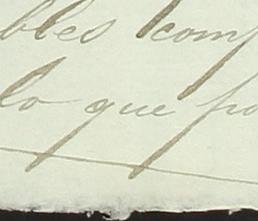 bles comp
lo que po